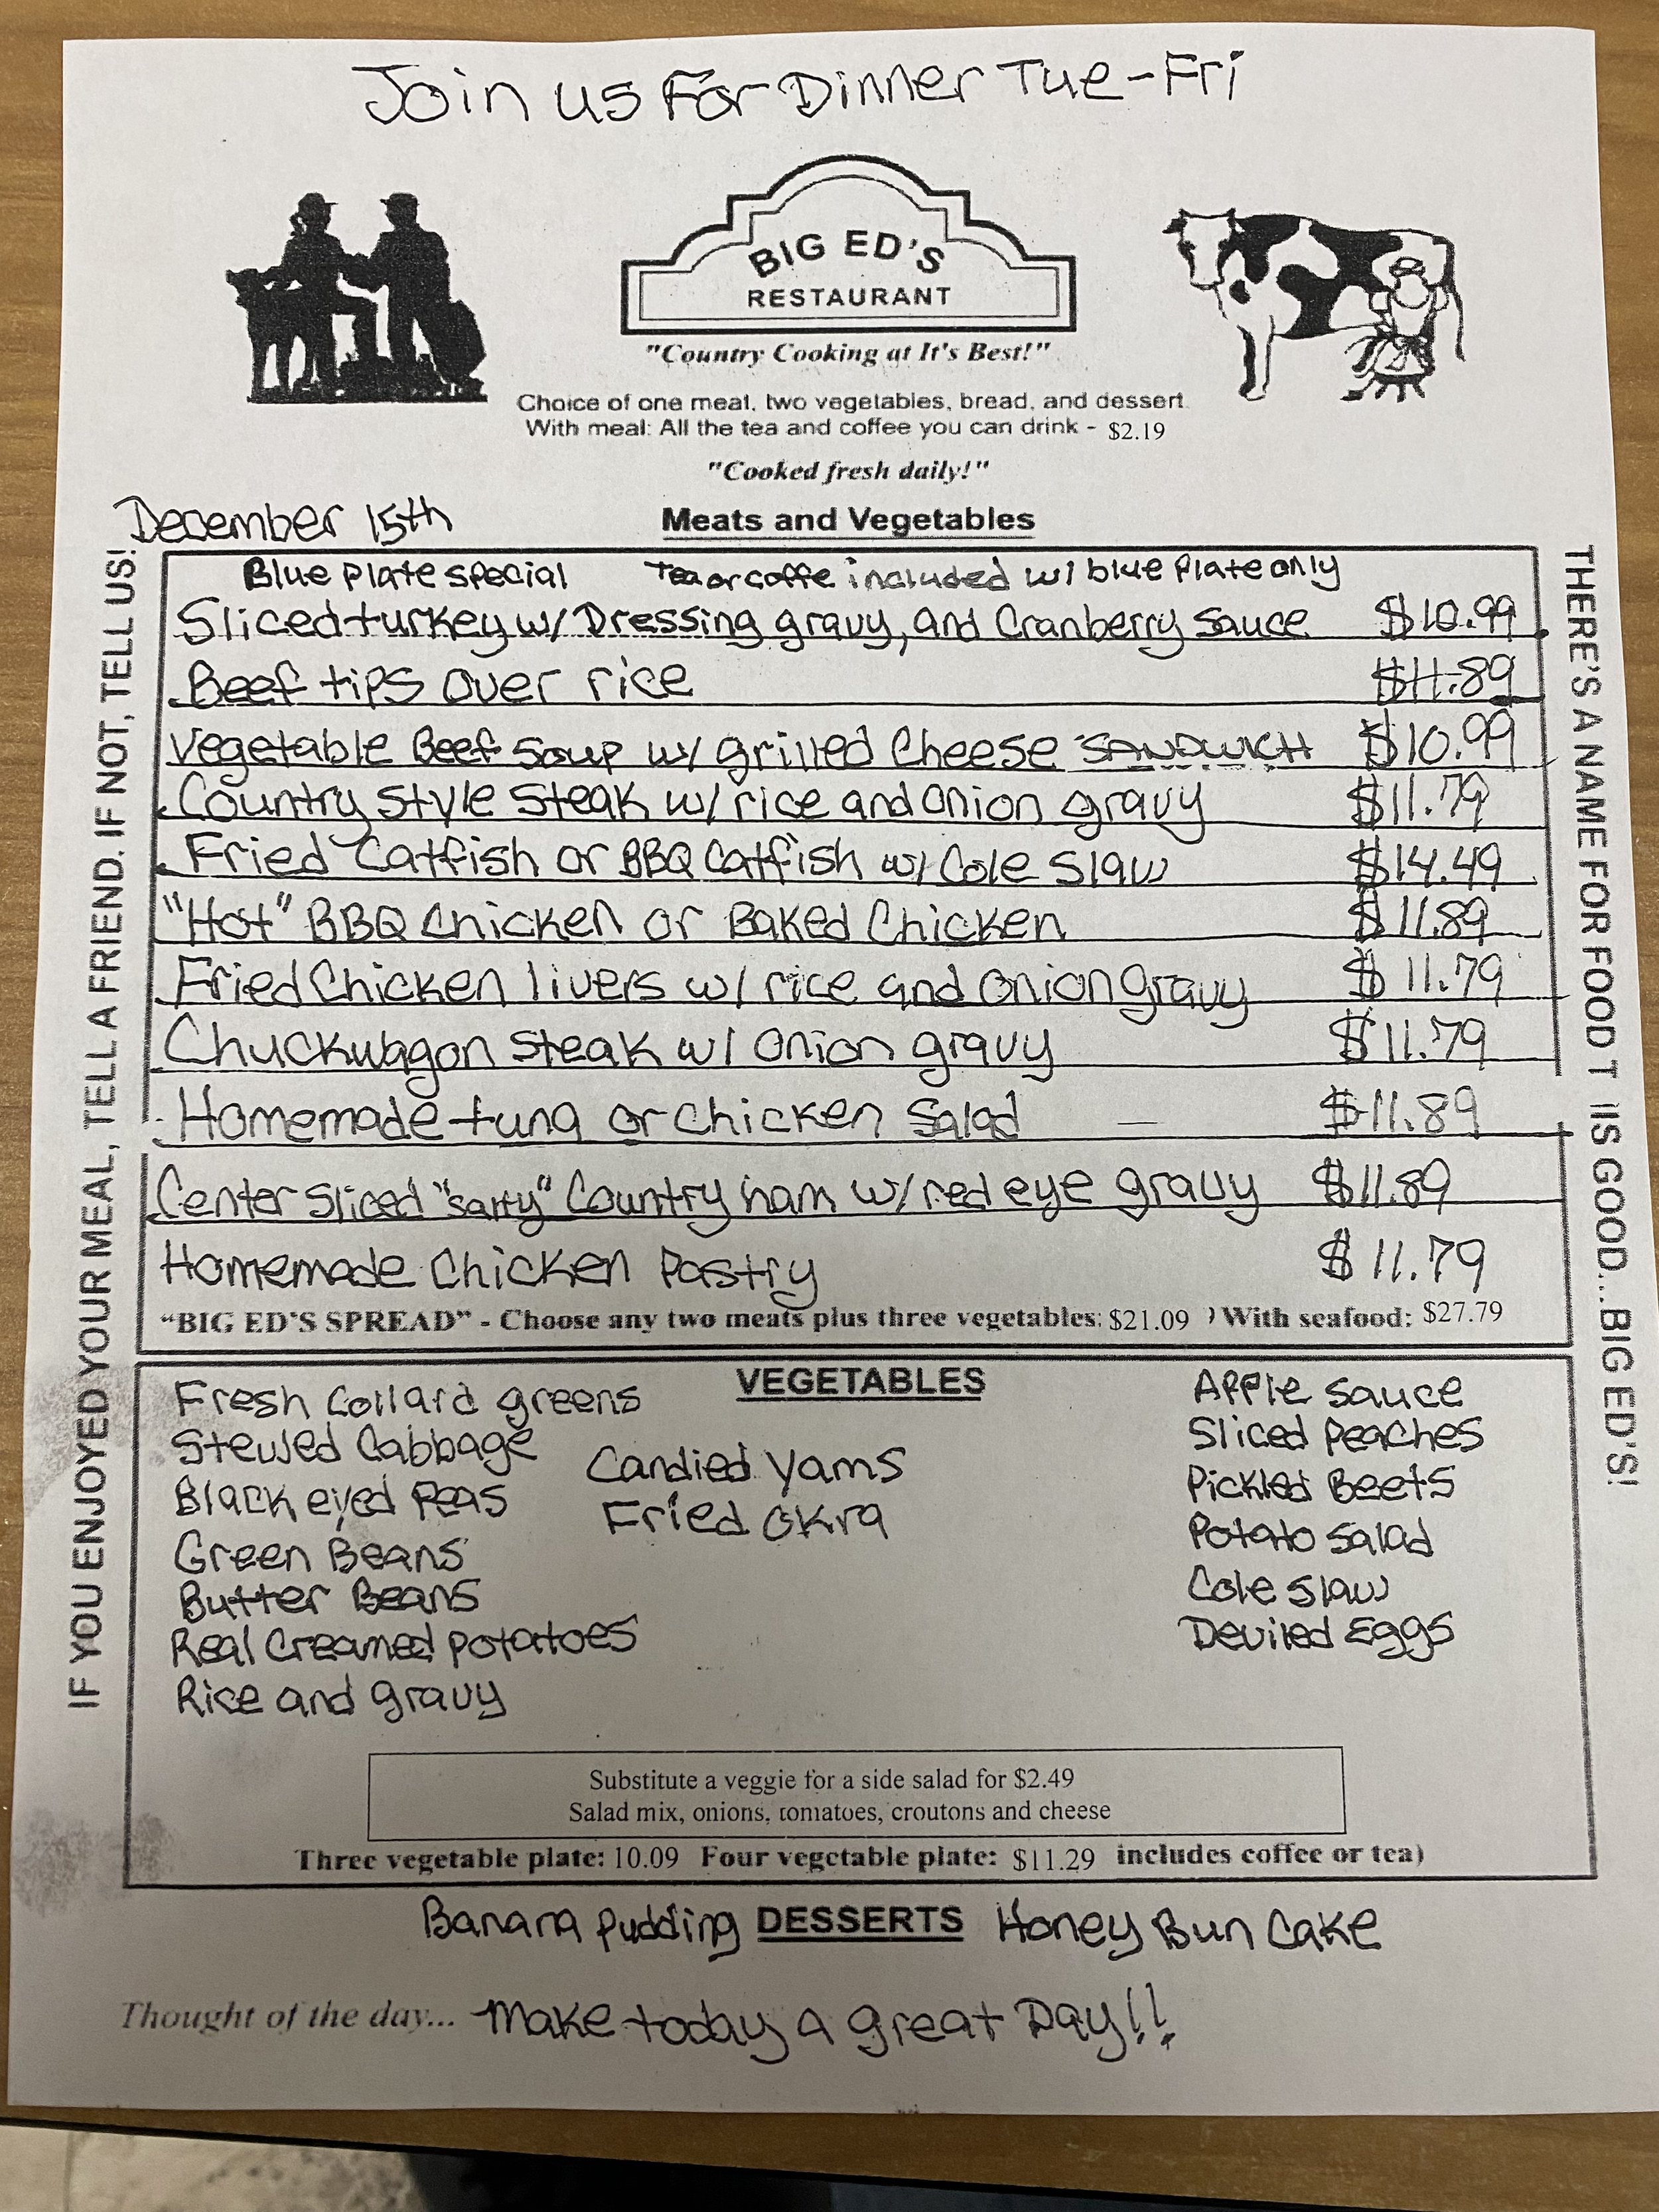 Join us For Dinner Tue-Fri
BIG ED'S
RESTAURANT
"Country Cooking at It's Best!"
Choice of one meat, two vegetables, bread, and dessert.
With meal: All the tea and coffee you can drink - $2.19
"Cooked fresh daily!"
December 15th
Meats and Vegetables
IF YOU ENJOYED YOUR MEAL, TELL A FRIEND. IF NOT, TELL US!
Blue Plate special Tea or coffe included w/ blue Plate only
Sliced turkey w/ Dressing gravy, and Cranberry Sauce $10.99
Beef tips over rice $11.89
Vegetable Beef Soup w/ grilled Cheese SANDWICH $10.99
Country Style Steak w/ rice and onion gravy $11.79
Fried Catfish or BBQ Catfish w/ Cole Slaw $14.49
"Hot" BBQ Chicken or Baked Chicken $11.89
Fried Chicken livers w/ rice and onion gravy $11.79
Chuckwagon Steak w/ onion gravy $11.79
Homemade tuna or Chicken Salad $11.89
Center Sliced "salty" Country ham w/ red eye gravy $11.89
Homemade Chicken Pastry $11.79
"BIG ED'S SPREAD" - Choose any two meats plus three vegetables: $21.09 ) With seafood: $27.79
THERE'S A NAME FOR FOOD T IS GOOD...BIG ED'S!
VEGETABLES
Fresh Collard greens
Stewed Cabbage
Black eyed Peas
Green Beans
Butter Beans
Real Creamed Potatoes
Rice and gravy
Candied Yams
Fried Okra
Apple Sauce
Sliced Peaches
Pickled Beets
Potato Salad
Cole Slaw
Deviled Eggs
Substitute a veggie for a side salad for $2.49
Salad mix, onions, tomatoes, croutons and cheese
Three vegetable plate: 10.09 Four vegetable plate: $11.29 includes coffee or tea)
Banana Pudding DESSERTS Honey Bun Cake
Thought of the day... Make today a great Day!!